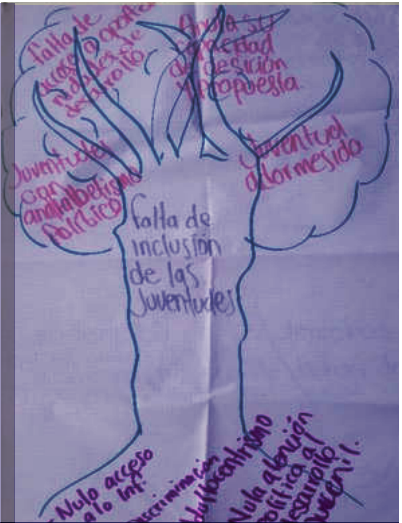 falta de
acceso a oportu
nidades de
desarrollo
Anula su
capacidad
de desición
y propuesta
Juventudes
con
analfabetismo
político
Juventud
adormesida
falta de
inclusión
de las
Juventudes
Nulo acceso
a la Inf.
Discriminación
Adultocentrismo
Nula atención
política al
desarrollo
Juvenil.